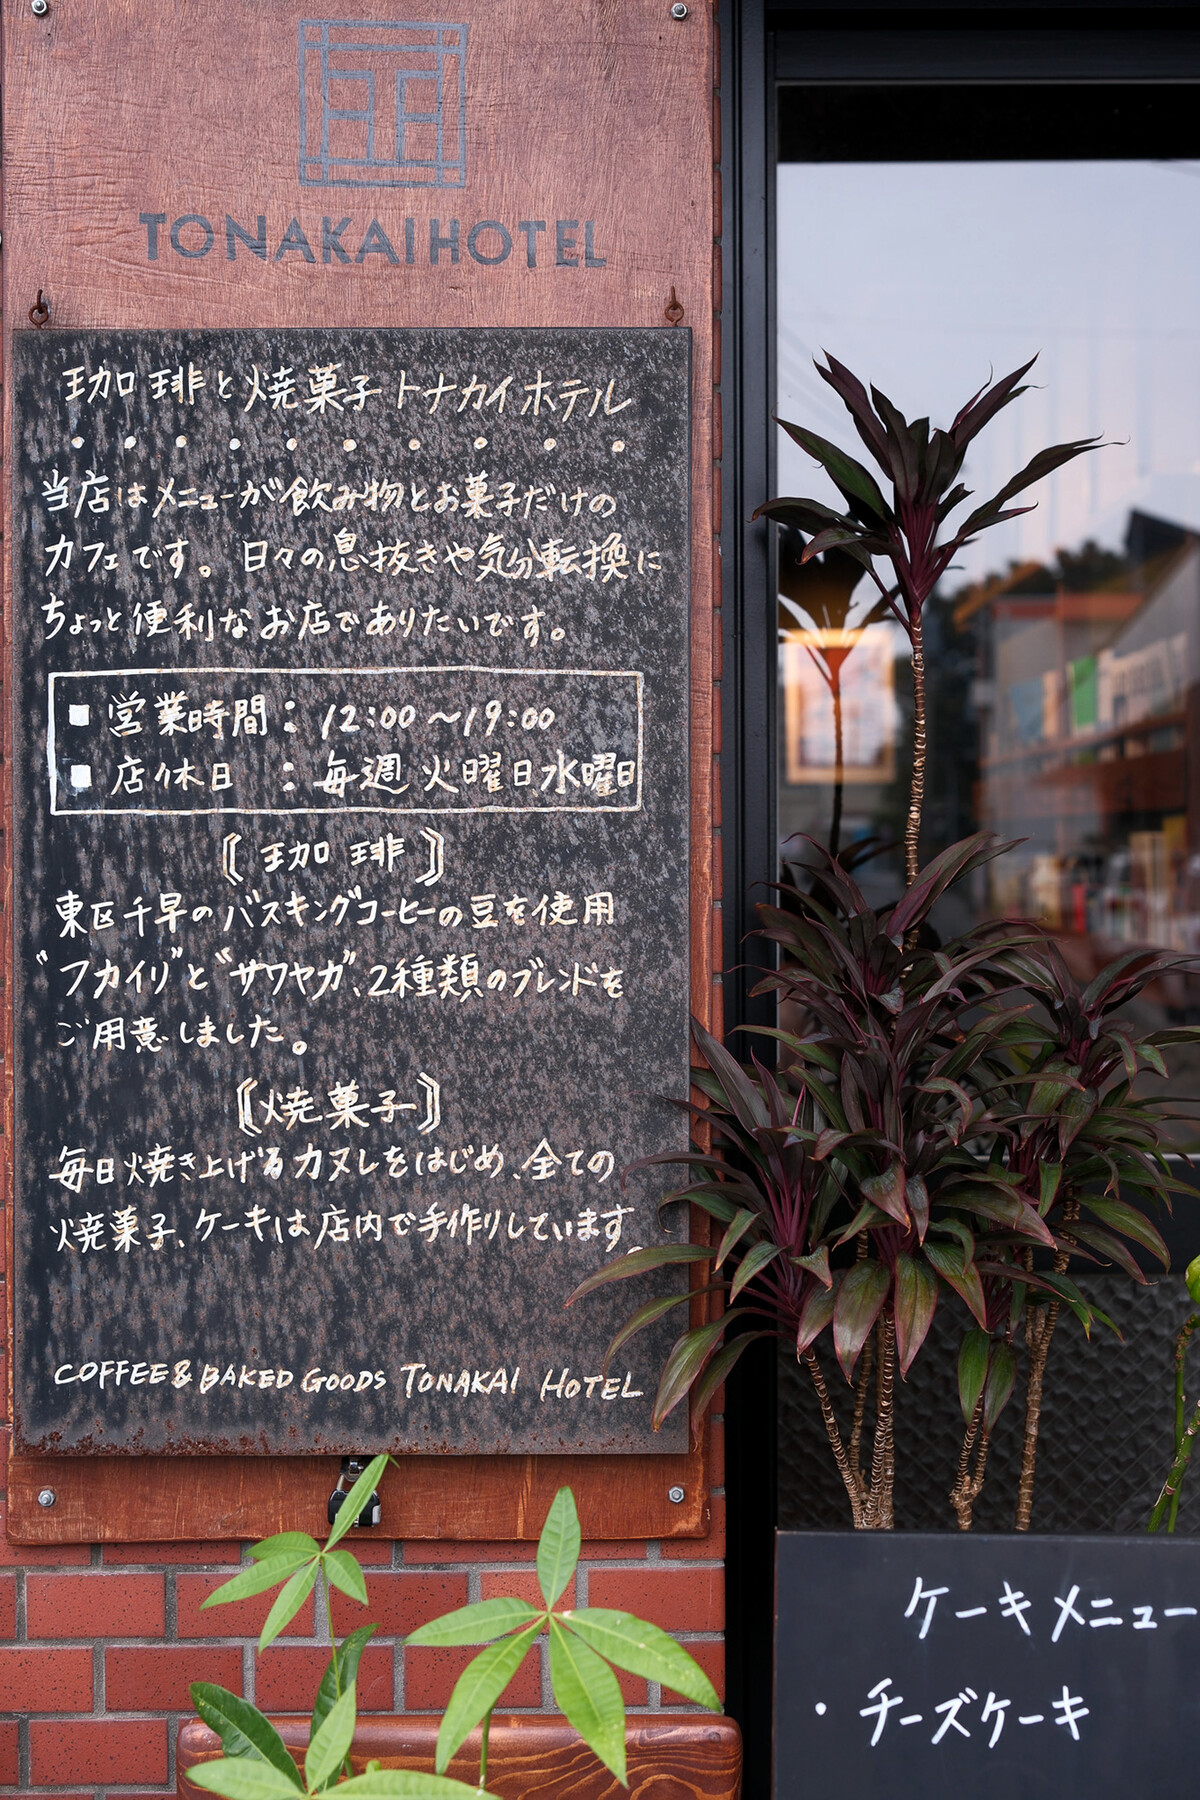 TONAKAI HOTEL
珈琲と焼菓子トナカイホテル
当店はメニューが飲み物とお菓子だけの
カフェです。日々の息抜きや気分転換に
ちょっと便利なお店でありたいです。
■ 営業時間：12:00～19:00
■ 店休日 ：毎週火曜日、水曜日
〘珈琲〙
東区千早のバスキングコーヒーの豆を使用
“フカイリ”と“サワヤカ”、2種類のブレンドを
ご用意しました。
〘焼菓子〙
毎日焼き上げるカヌレをはじめ、全ての
焼菓子、ケーキは店内で手作りしています。
COFFEE & BAKED GOODS TONAKAI HOTEL
ケーキメニュー
・チーズケーキ